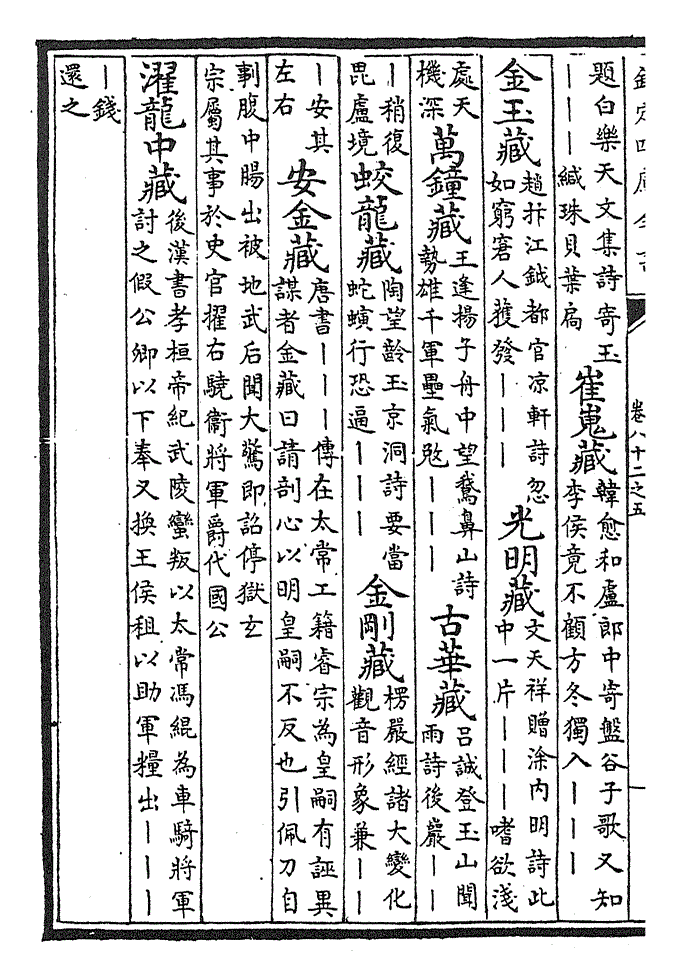 欽定四庫全書
卷八十二之五
題白樂天文集詩寄玉
｜｜｜緘珠貝葉扃
崔嵬藏
韓愈和盧郎中寄盤谷子歌又知
李侯竟不顧方冬獨入｜｜｜
金玉藏
趙抃江鉞都官凉軒詩忽
如窮窘人獲發｜｜｜
光明藏
文天祥贈涂内明詩此
中一片｜｜｜嗜欲淺
處天
機深
萬鐘藏
王逢揚子舟中望鵞鼻山詩
勢雄千軍壘氣｜｜｜
古華藏
吕誠登玉山聞
雨詩後巖｜｜
｜稍復
毘盧境
蛟龍藏
陶望齡玉京洞詩要當
蛇蟥行恐逼｜｜｜
金剛藏
楞嚴經諸大變化
觀音形象兼｜｜
｜安其
左右
安金藏
唐書｜｜｜傳在太常工籍睿宗為皇嗣有誣異
謀者金藏曰請剖心以明皇嗣不反也引佩刀自
剚腹中腸出被地武后聞大驚即詔停獄玄
宗屬其事於史官擢右驍衛將軍爵代國公
濯龍中藏
後漢書孝桓帝紀武陵蠻叛以太常馮緄為車騎將軍
討之假公卿以下奉又換王侯租以助軍糧出｜｜｜
｜錢
還之